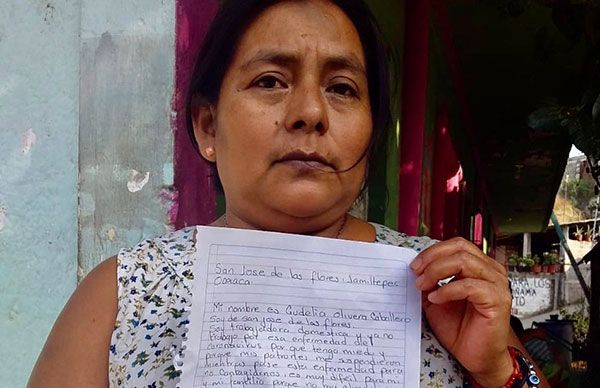 San Jose de las flores Jamiltepec
Oaxaca.
Mi nombre es Gudelia olivera Caballero
Soy de san jose de las flores
Soy trabajadora domestica y ya no
trabajo por esa enfermedad del
coronavirus por que tengo miedo y
porque mis patrones me suspendieron
mientras pase esta enfermedad para
no contagiarnos es muy dificil para mi
y mi familia porque no
O LOS